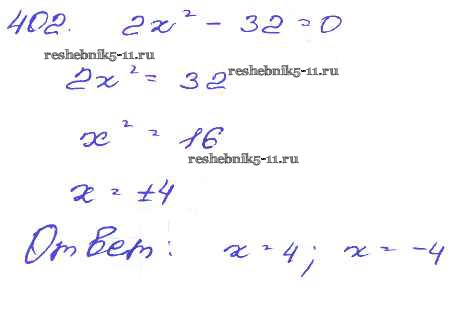 402. 2x² - 32 = 0
reshebnik5-11.ru
2x² = 32 reshebnik5-11.ru
x² = 16
reshebnik5-11.ru
x = ±4
Ответ: x = 4; x = -4